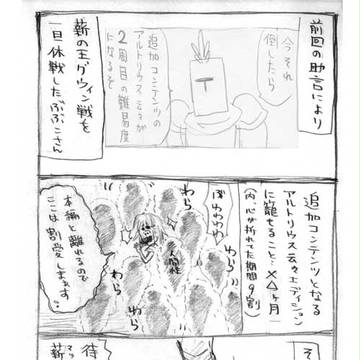 前回の助言により
今それ
倒したら
追加コンテンツの
アルトリウス云々が
2周目の難易度
になるぞ
薪の王グウィン戦を
一旦休戦したぶぶこさん
追加コンテンツとなる
アルトリウス云々エディション
に籠せること:×△ヶ月
(内、心が折れてた期間9割)
ぼわわわわ
わら
わら
人間性
わら
わら
本編と離れるので
ここは割愛しまぁす…
そ
待
マッ
薪